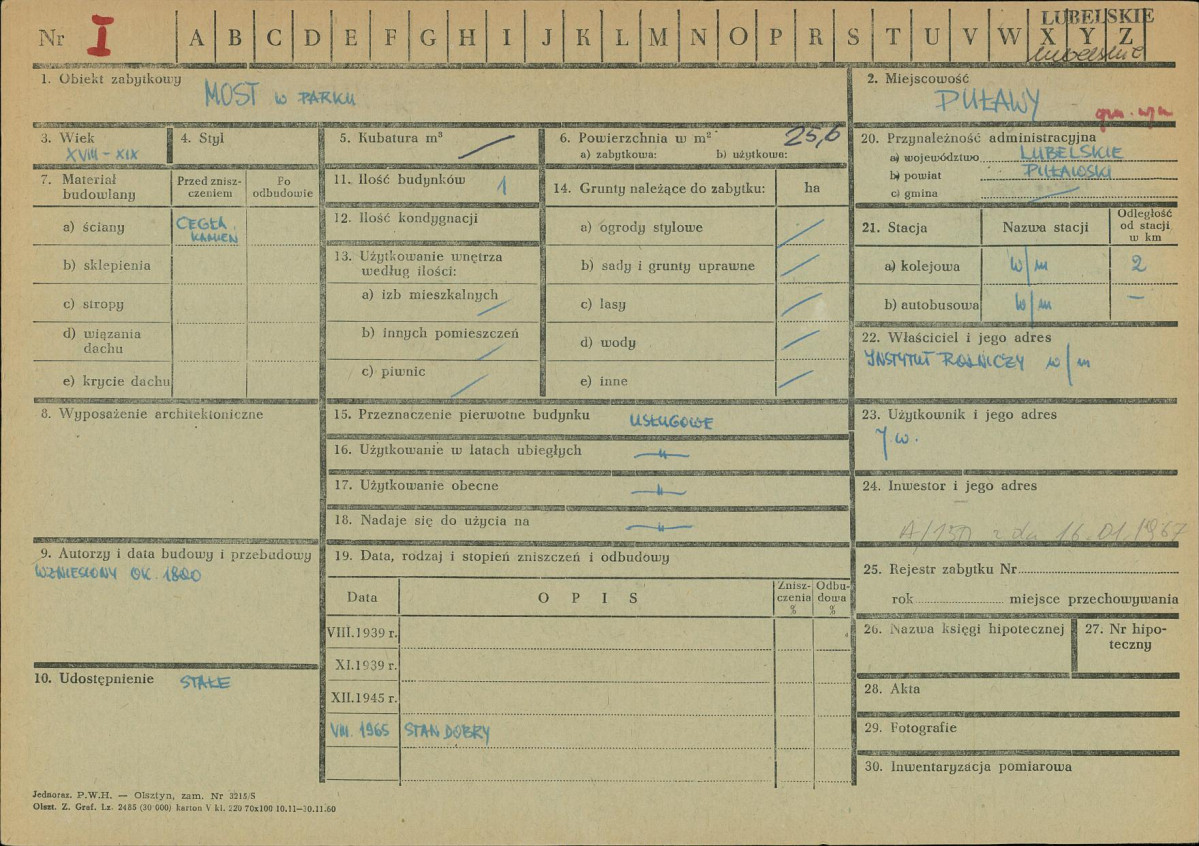 Nr I A B C D E F G H I J K L M N O P R S T U V W X Y Z
LUBELSKIE
lubelskie
1. Obiekt zabytkowy MOST W PARKU
2. Miejscowość PUŁAWY
3. Wiek XVIII – XIX
4. Styl
5. Kubatura m³
6. Powierzchnia w m² 25,6
a) zabytkowa: b) użytkowa:
7. Materiał budowlany
Przed znisz-
czeniem
Po
odbudowie
a) ściany CEGŁA
KAMIEŃ
b) sklepienia
c) stropy
d) wiązania
dachu
e) krycie dachu
8. Wyposażenie architektoniczne
9. Autorzy i data budowy i przebudowy
WZNIESIONY OK. 1800
10. Udostępnienie STAŁE
11. Ilość budynków 1
12. Ilość kondygnacji
13. Użytkowanie wnętrza
według ilości:
a) izb mieszkalnych
b) innych pomieszczeń
c) piwnic
14. Grunty należące do zabytku: ha
a) ogrody stylowe
b) sady i grunty uprawne
c) lasy
d) wody
e) inne
15. Przeznaczenie pierwotne budynku USŁUGOWE
16. Użytkowanie w latach ubiegłych —"—
17. Użytkowanie obecne —"—
18. Nadaje się do użycia na —"—
19. Data, rodzaj i stopień zniszczeń i odbudowy
Data OPIS
Znisz-
czenia
%
Odbu-
dowa
%
VIII.1939 r.
XI.1939 r.
XII.1945 r.
VIII. 1965 STAN DOBRY
20. Przynależność administracyjna
a) województwo LUBELSKIE
b) powiat PUŁAWSKI
c) gmina
21. Stacja Nazwa stacji
Odległość
od stacji
w km
a) kolejowa w/m 2
b) autobusowa w/m —
22. Właściciel i jego adres
INSTYTUT ROLNICZY w/m
23. Użytkownik i jego adres
J.w.
24. Inwestor i jego adres
–
A/150 z dn 16.01.1967
25. Rejestr zabytku Nr
rok miejsce przechowywania
26. Nazwa księgi hipotecznej
27. Nr hipo-
teczny
28. Akta
29. Fotografie
30. Inwentaryzacja pomiarowa
Jednoraz. P.W.H. — Olsztyn, zam. Nr 3215/S
Olszt. Z. Graf. Lz. 2485 (30 000) karton V kl. 220 70x100 10.11—30.11.60